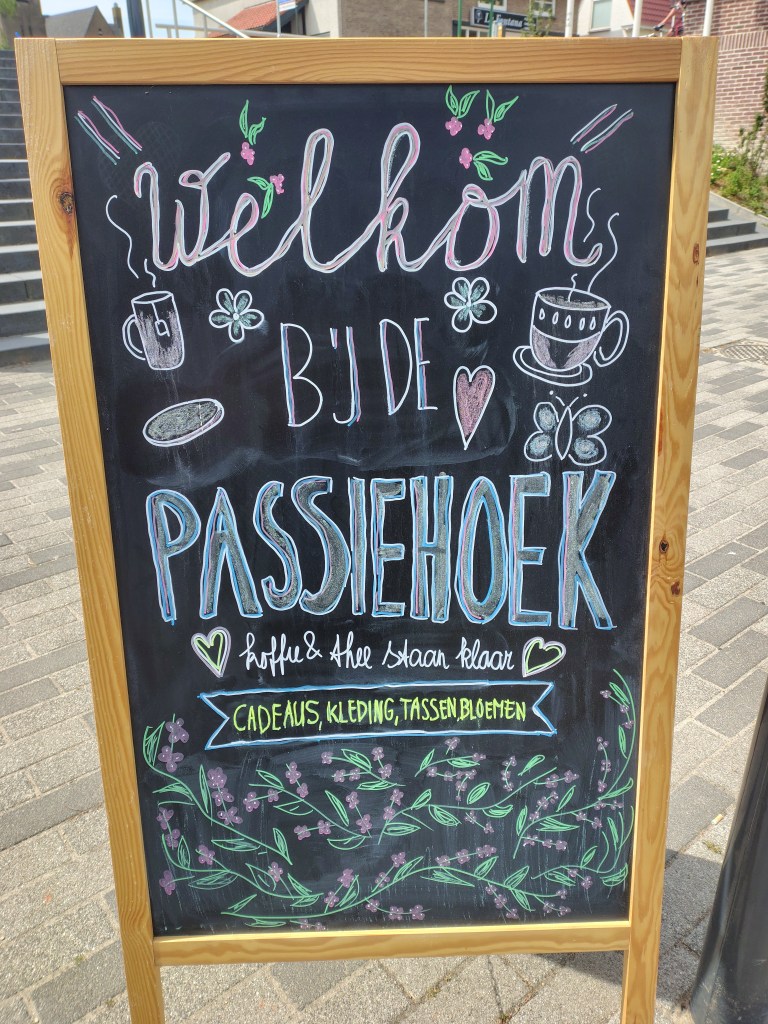 La Fontana
Welkom
BIJ DE
PASSIEHOEK
koffie & thee staan klaar
CADEAUS, KLEDING, TASSEN, BLOEMEN